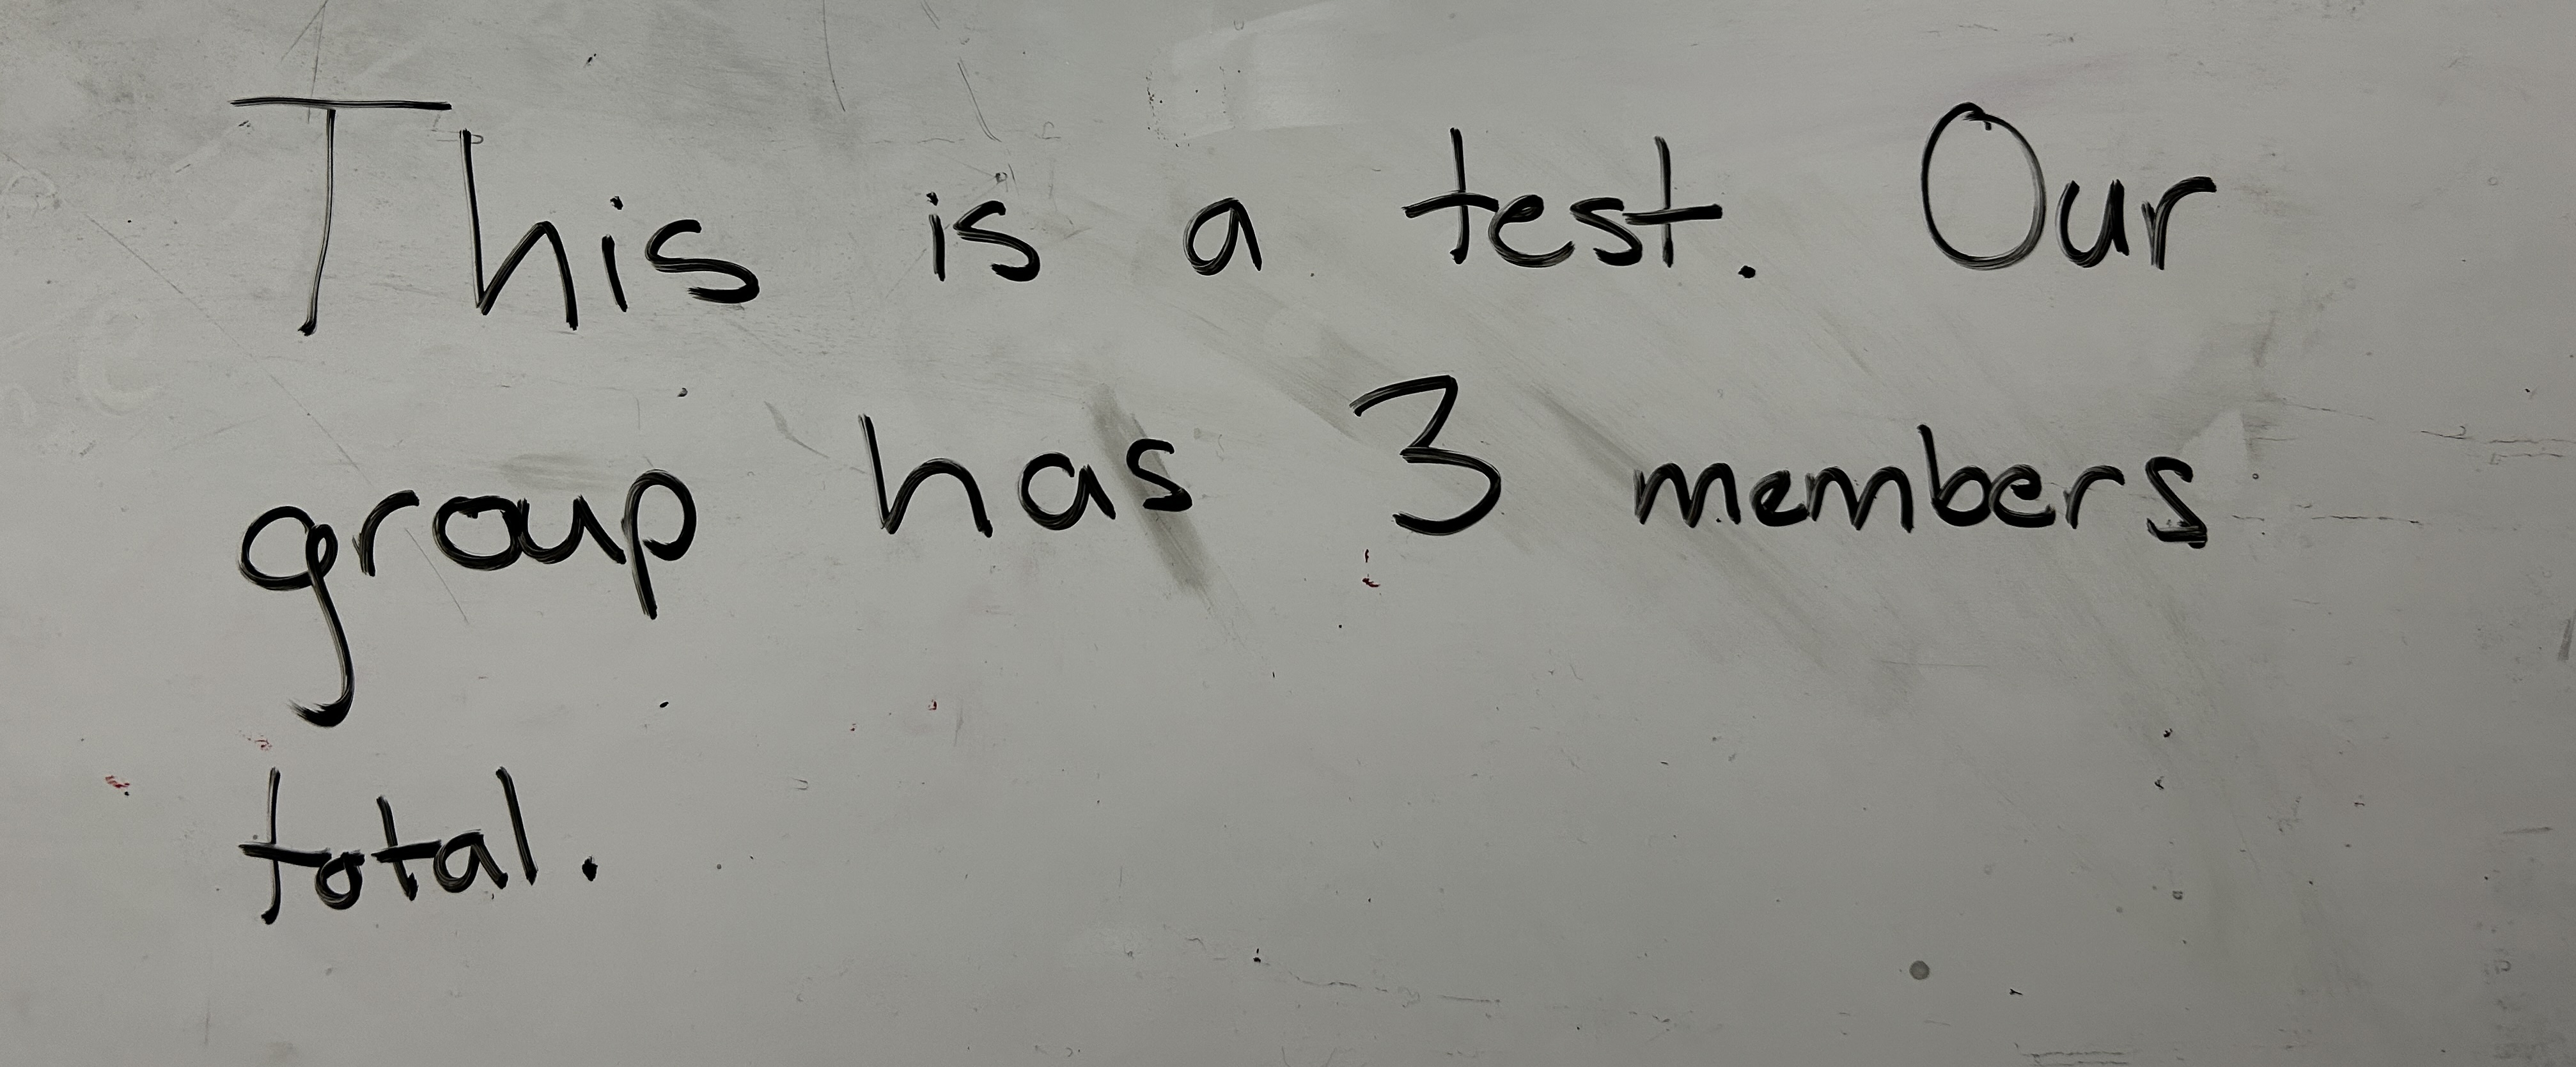 This is a test. Our
group has 3 members
total.